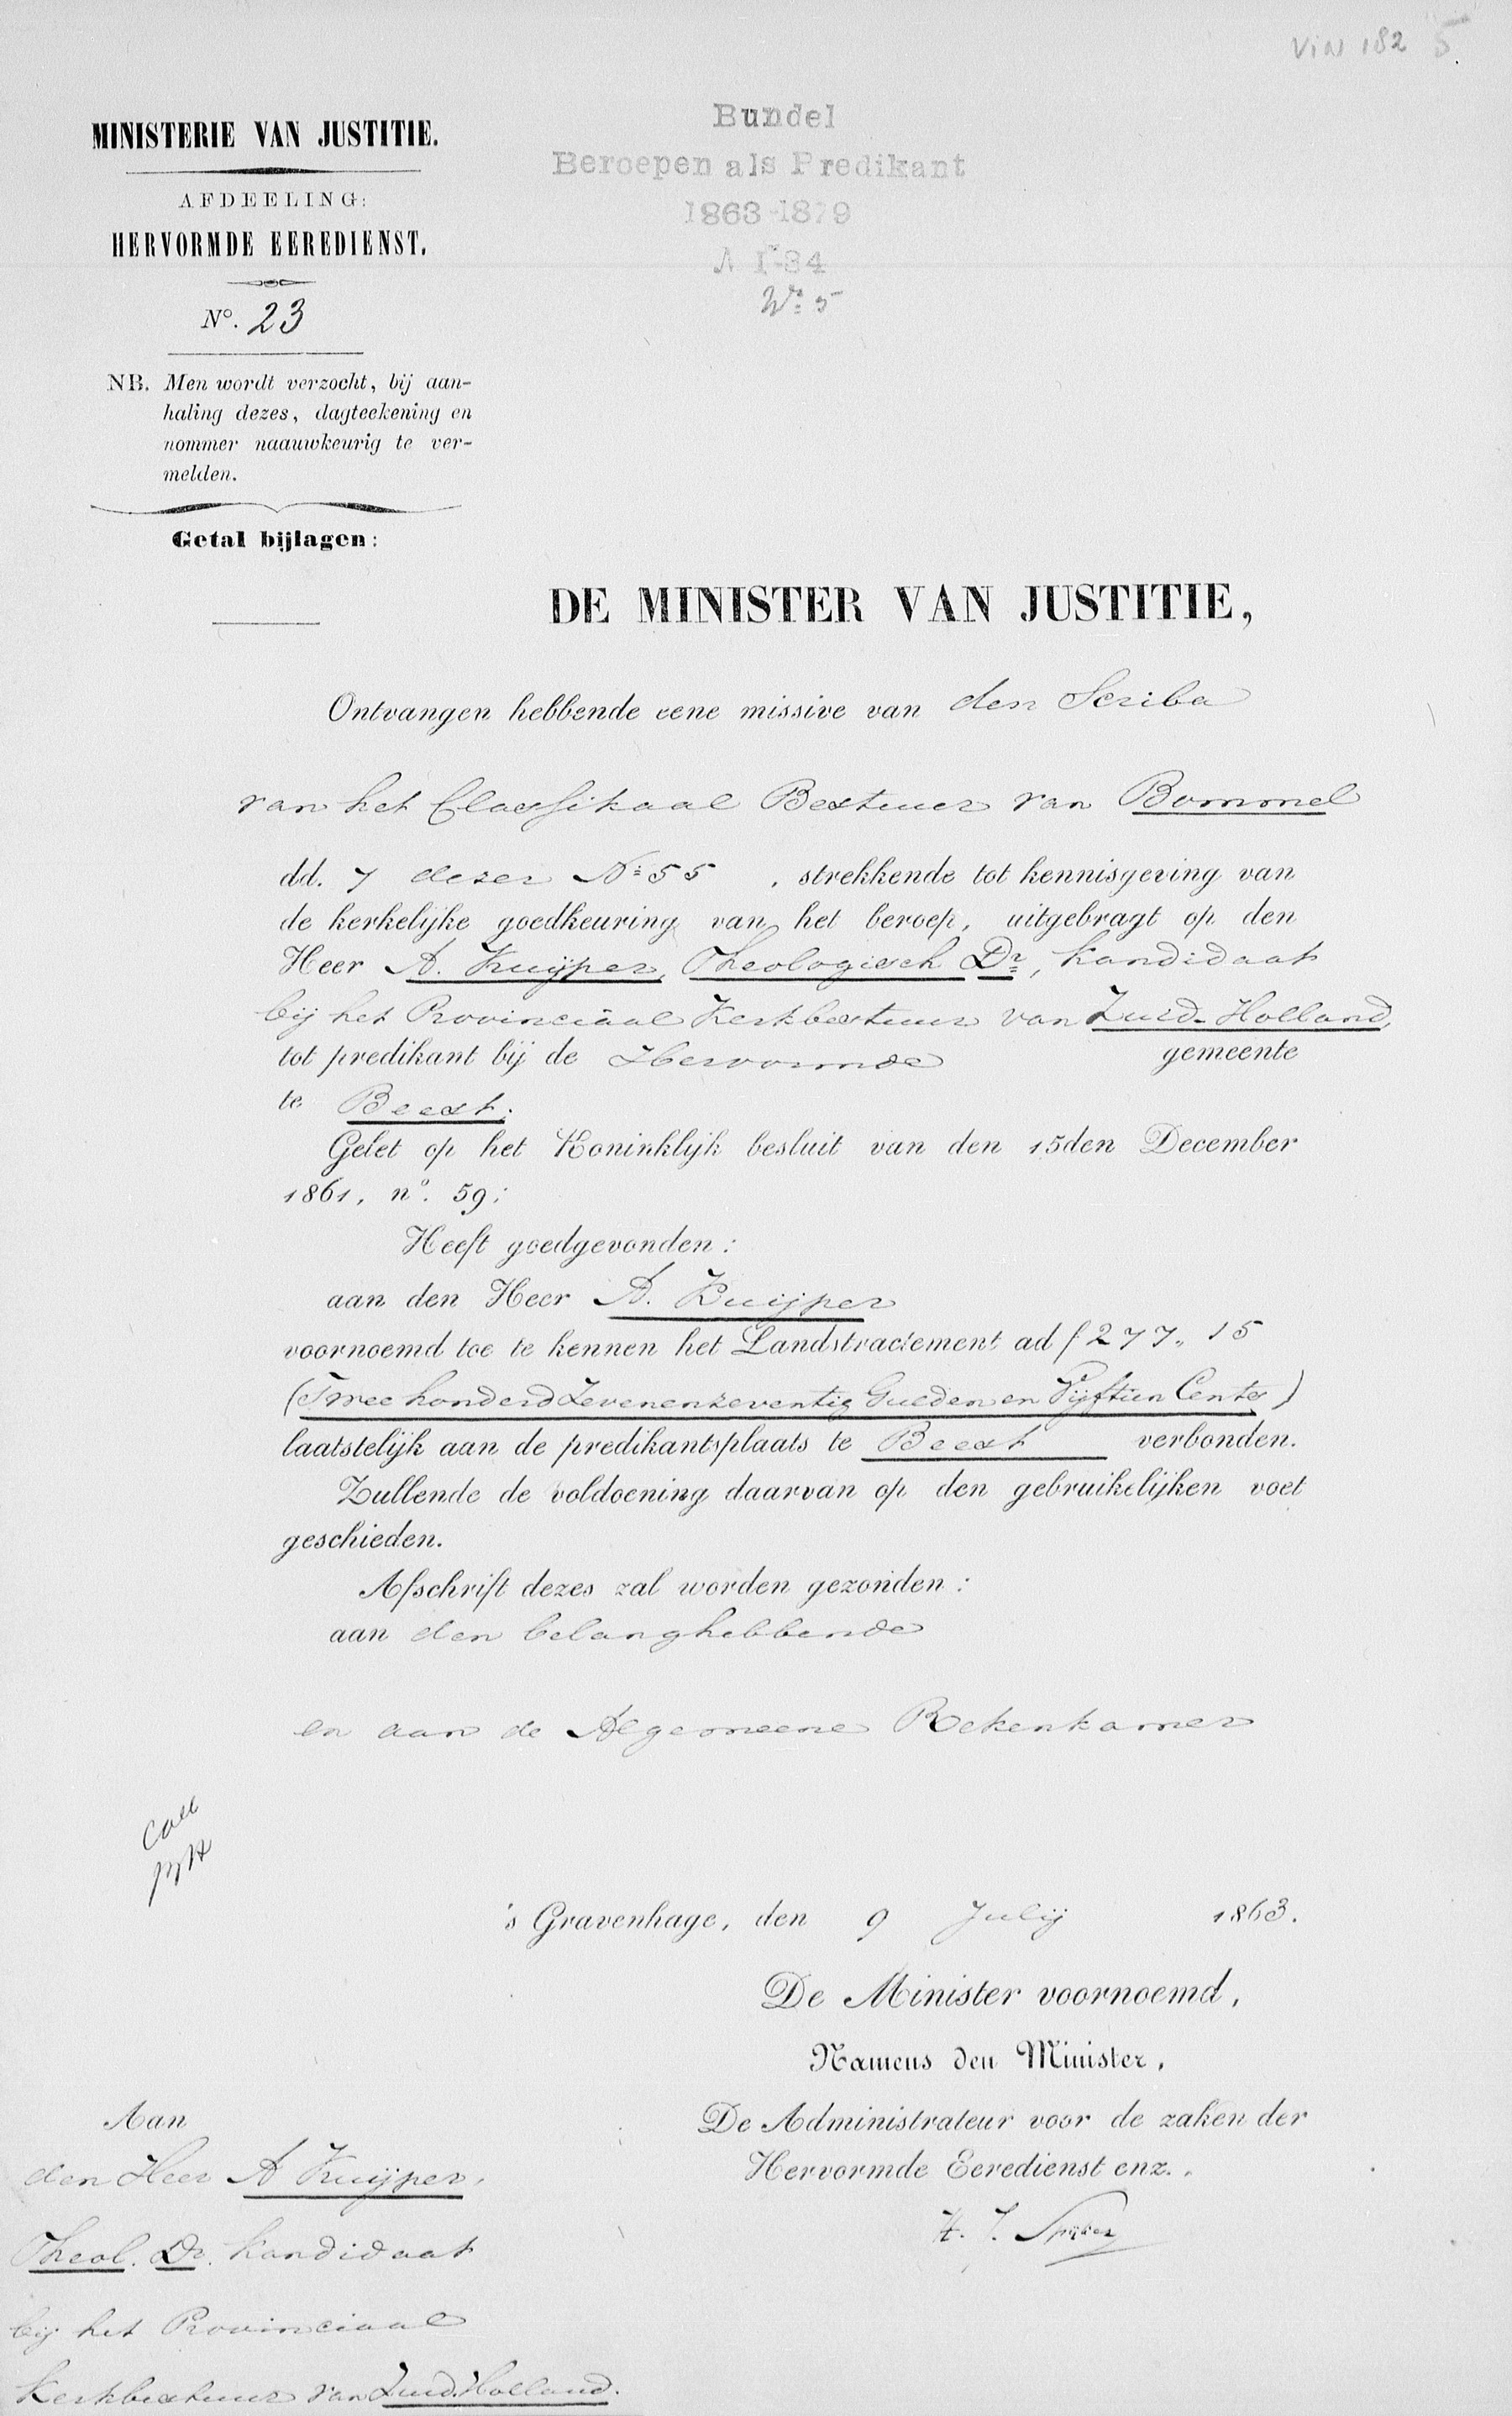 VIN 182 5
MINISTERIE VAN JUSTITIE.
AFDEELING:
HERVORMDE EEREDIENST.
Nº. 23
NB. Men wordt verzocht, bij aan-
haling dezes, dagteekening en
nommer naauwkeurig te ver-
melden.
Getal bijlagen:
Bundel
Beroepen als Predikant
1863-1879
A I-34
Nº 5
DE MINISTER VAN JUSTITIE,
Ontvangen hebbende eene missive van den Scriba
van het Classikaal Bestuur van Bommel
dd. 7 dezer Nº 55, strekkende tot kennisgeving van
de kerkelijke goedkeuring van het beroep, uitgebragt op den
Heer A. Kuijper, Theologisch Dr, kandidaat
bij het Provinciaal Kerkbestuur van Zuid-Holland,
tot predikant bij de Hervormde gemeente
te Beest;
Gelet op het Koninklijk besluit van den 15den December
1861, nº. 59;
Heeft goedgevonden:
aan den Heer A. Kuijper
voornoemd toe te kennen het Landstractement ad f 277,, 15
(Twee honderd Zevenenzeventig Gulden en Vijftien Cents)
laatstelijk aan de predikantsplaats te Beest verbonden.
Zullende de voldoening daarvan op den gebruikelijken voet
geschieden.
Afschrift dezes zal worden gezonden:
aan den belanghebbende
en aan de Algemeene Rekenkamer
Coll
's Gravenhage, den 9 Julij 1863.
De Minister voornoemd,
Namens den Minister,
De Administrateur voor de zaken der
Hervormde Eeredienst enz.,
Aan
den Heer A Kuijper,
Theol. Dr. kandidaat
bij het Provinciaal
Kerkbestuur van Zuid-Holland.